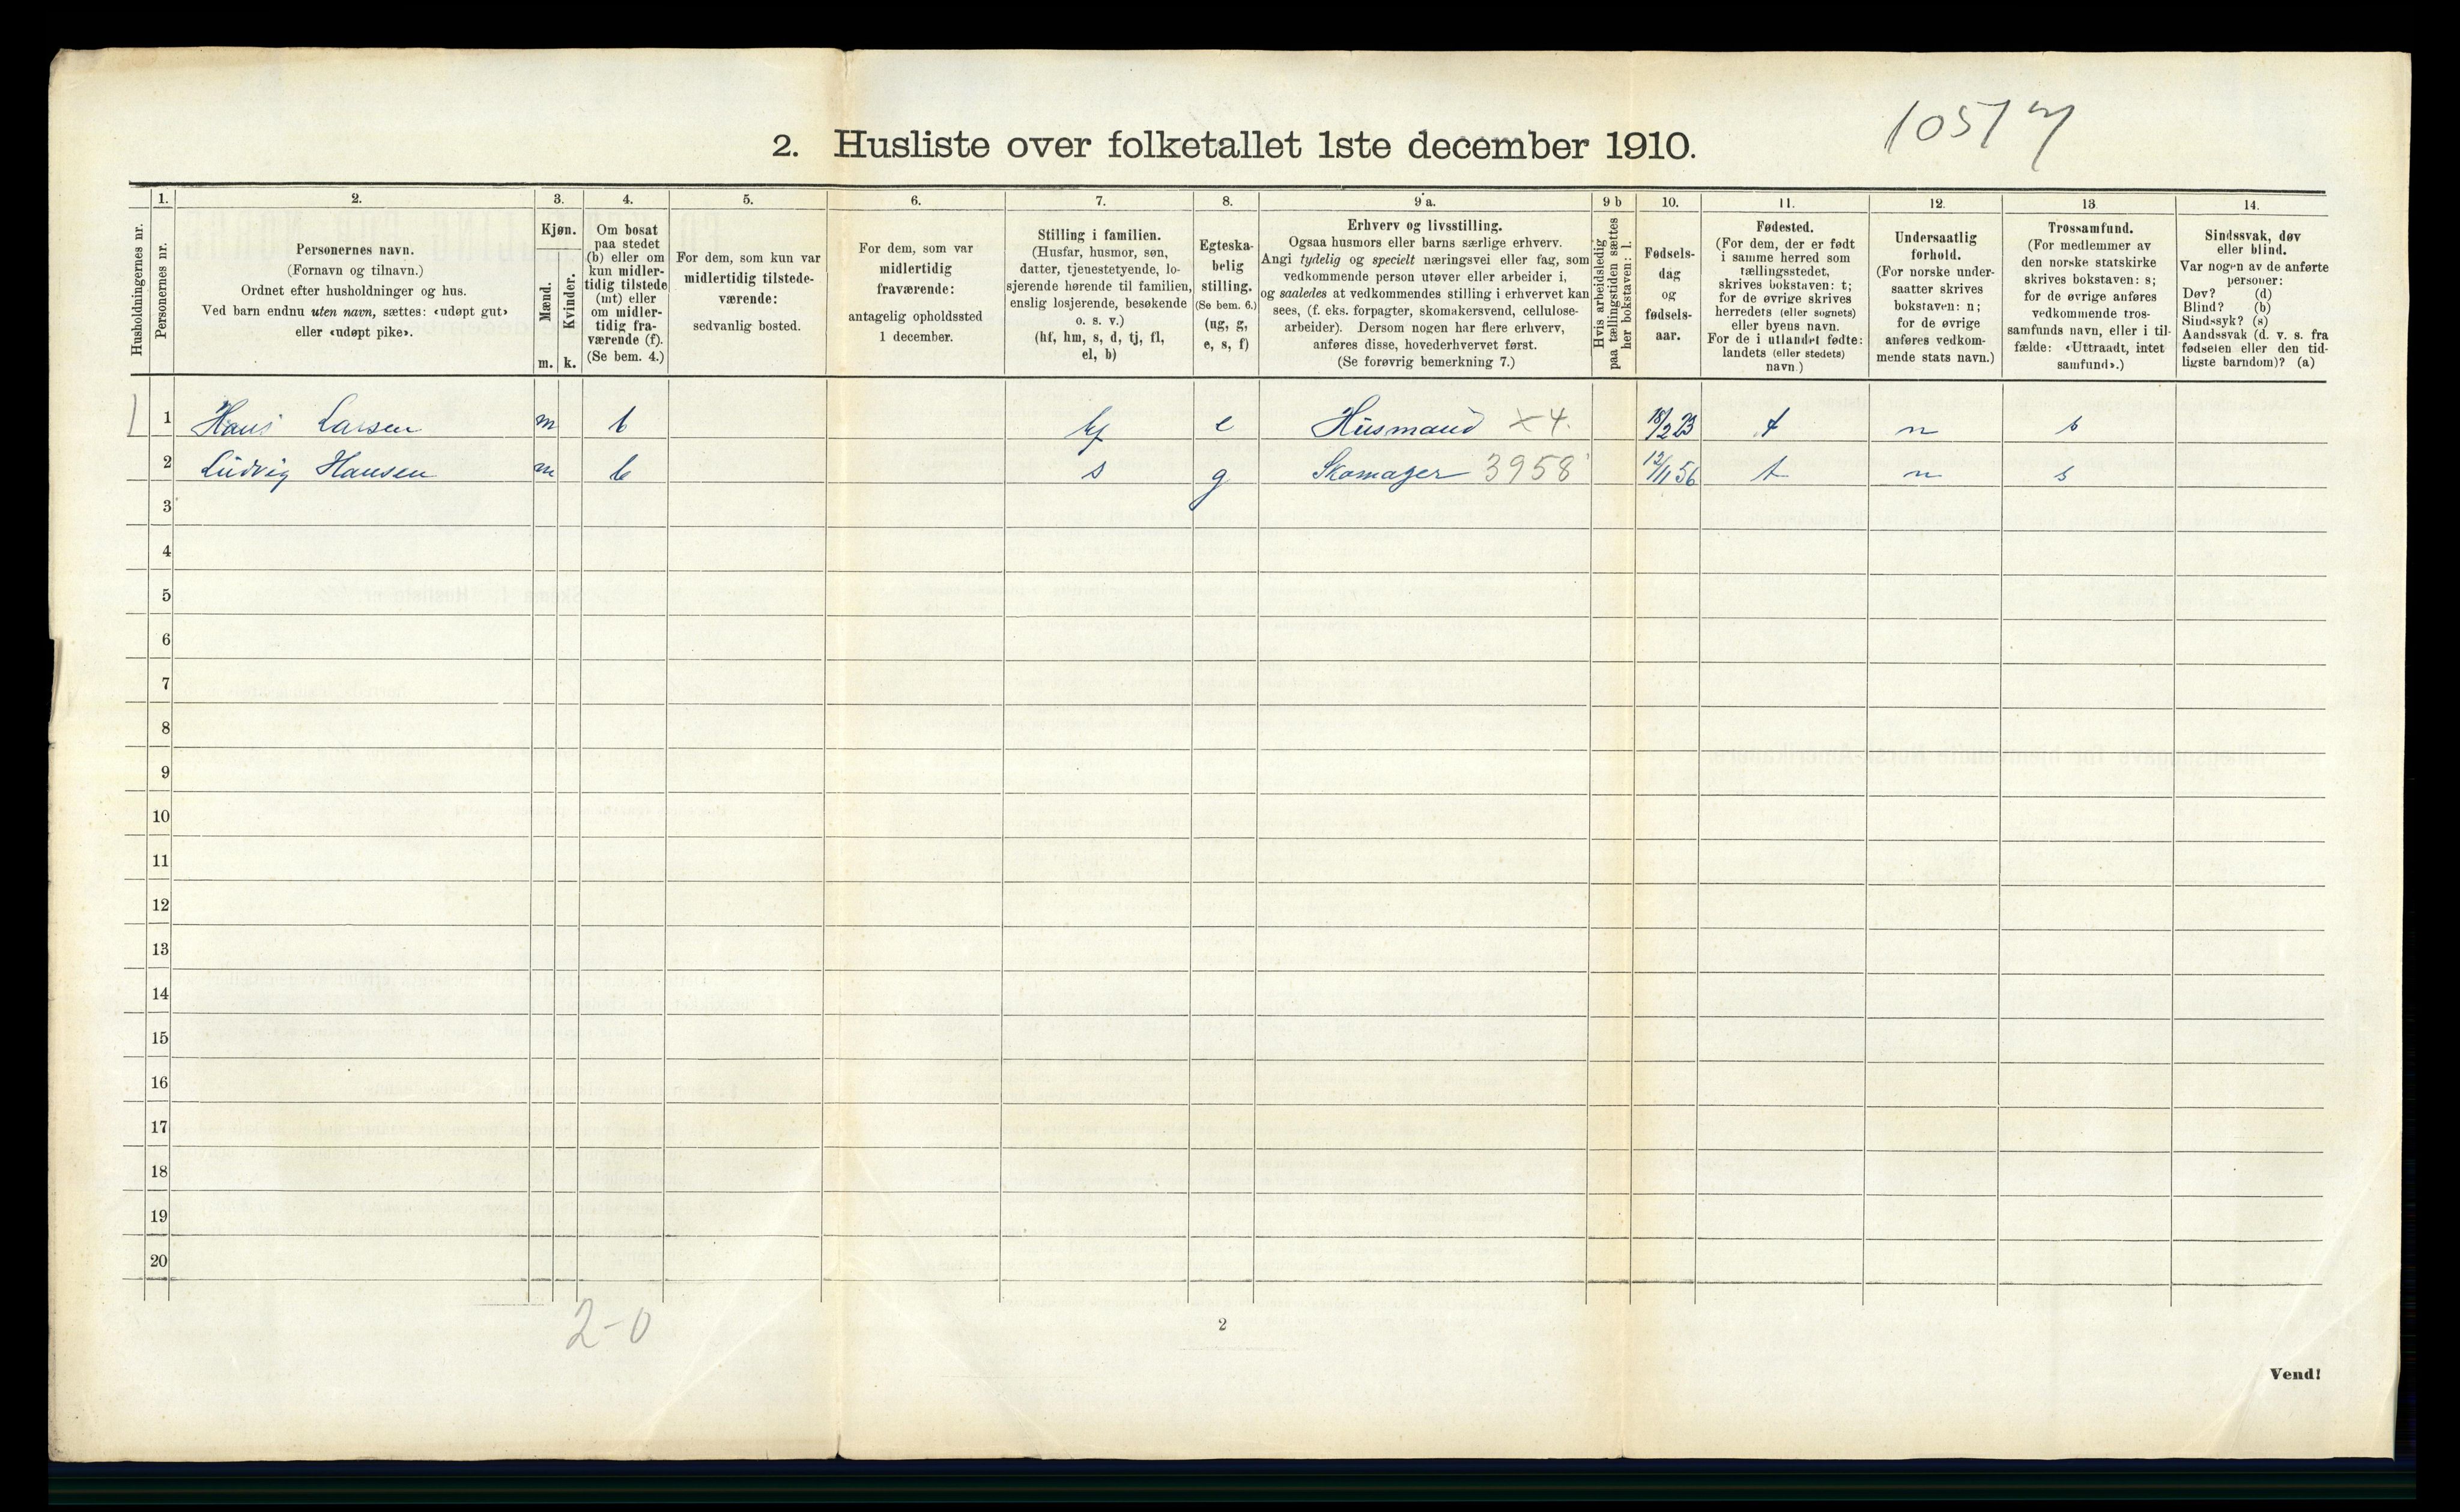 1057
2. Husliste over folketallet 1ste december 1910.
Husholdningernes nr.
1.
Personernes nr.
2.
Personernes navn.
(Fornavn og tilnavn.)
Ordnet efter husholdninger og hus.
Ved barn endnu uten navn, sættes: «udøpt gut»
eller «udøpt pike».
3.
Kjøn.
Mænd.
m.
Kvinder.
k.
4.
Om bosat
paa stedet
(b) eller om
kun midler-
tidig tilstede
(mt) eller
om midler-
tidig fra-
værende (f).
(Se bem. 4.)
5.
For dem, som kun var
midlertidig tilstede-
værende:
sedvanlig bosted.
6.
For dem, som var
midlertidig
fraværende:
antagelig opholdssted
1 december.
7.
Stilling i familien.
(Husfar, husmor, søn,
datter, tjenestetyende, lo-
sjerende hørende til familien,
enslig losjerende, besøkende
o. s. v.)
(hf, hm, s, d, tj, fl,
el, b)
8.
Egteska-
belig
stilling.
(Se bem. 6.)
(ug, g,
e, s, f)
9 a.
Erhverv og livsstilling.
Ogsaa husmors eller barns særlige erhverv.
Angi tydelig og specielt næringsvei eller fag, som
vedkommende person utøver eller arbeider i,
og saaledes at vedkommendes stilling i erhvervet kan
sees, (f. eks. forpagter, skomakersvend, cellulose-
arbeider). Dersom nogen har flere erhverv,
anføres disse, hovederhvervet først.
(Se forøvrig bemerkning 7.)
9 b
Hvis arbeidsledig
paa tællingstiden sættes
her bokstaven: l.
10.
Fødsels-
dag
og
fødsels-
aar.
11.
Fødested.
(For dem, der er født
i samme herred som
tællingsstedet,
skrives bokstaven: t;
for de øvrige skrives
herredets (eller sognets)
eller byens navn.
For de i utlandet fødte:
landets (eller stedets)
navn.)
12.
Undersaatlig
forhold.
(For norske under-
saatter skrives
bokstaven: n;
for de øvrige
anføres vedkom-
mende stats navn.)
13.
Trossamfund.
(For medlemmer av
den norske statskirke
skrives bokstaven: s;
for de øvrige anføres
vedkommende tros-
samfunds navn, eller i til-
fælde: «Uttraadt, intet
samfund».)
14.
Sindssvak, døv
eller blind.
Var nogen av de anførte
personer:
Døv? (d)
Blind? (b)
Sindssyk? (s)
Aandssvak (d. v. s. fra
fødselen eller den tid-
ligste barndom)? (a)
1 1 Hans Larsen m b hf e Husmand x4. 18/2 23 t n s
2 Ludvig Hansen m b s g Skomager 3958 12/11 56 t n s
3
4
5
6
7
8
9
10
11
12
13
14
15
16
17
18
19
20
2-0
2
Vend!